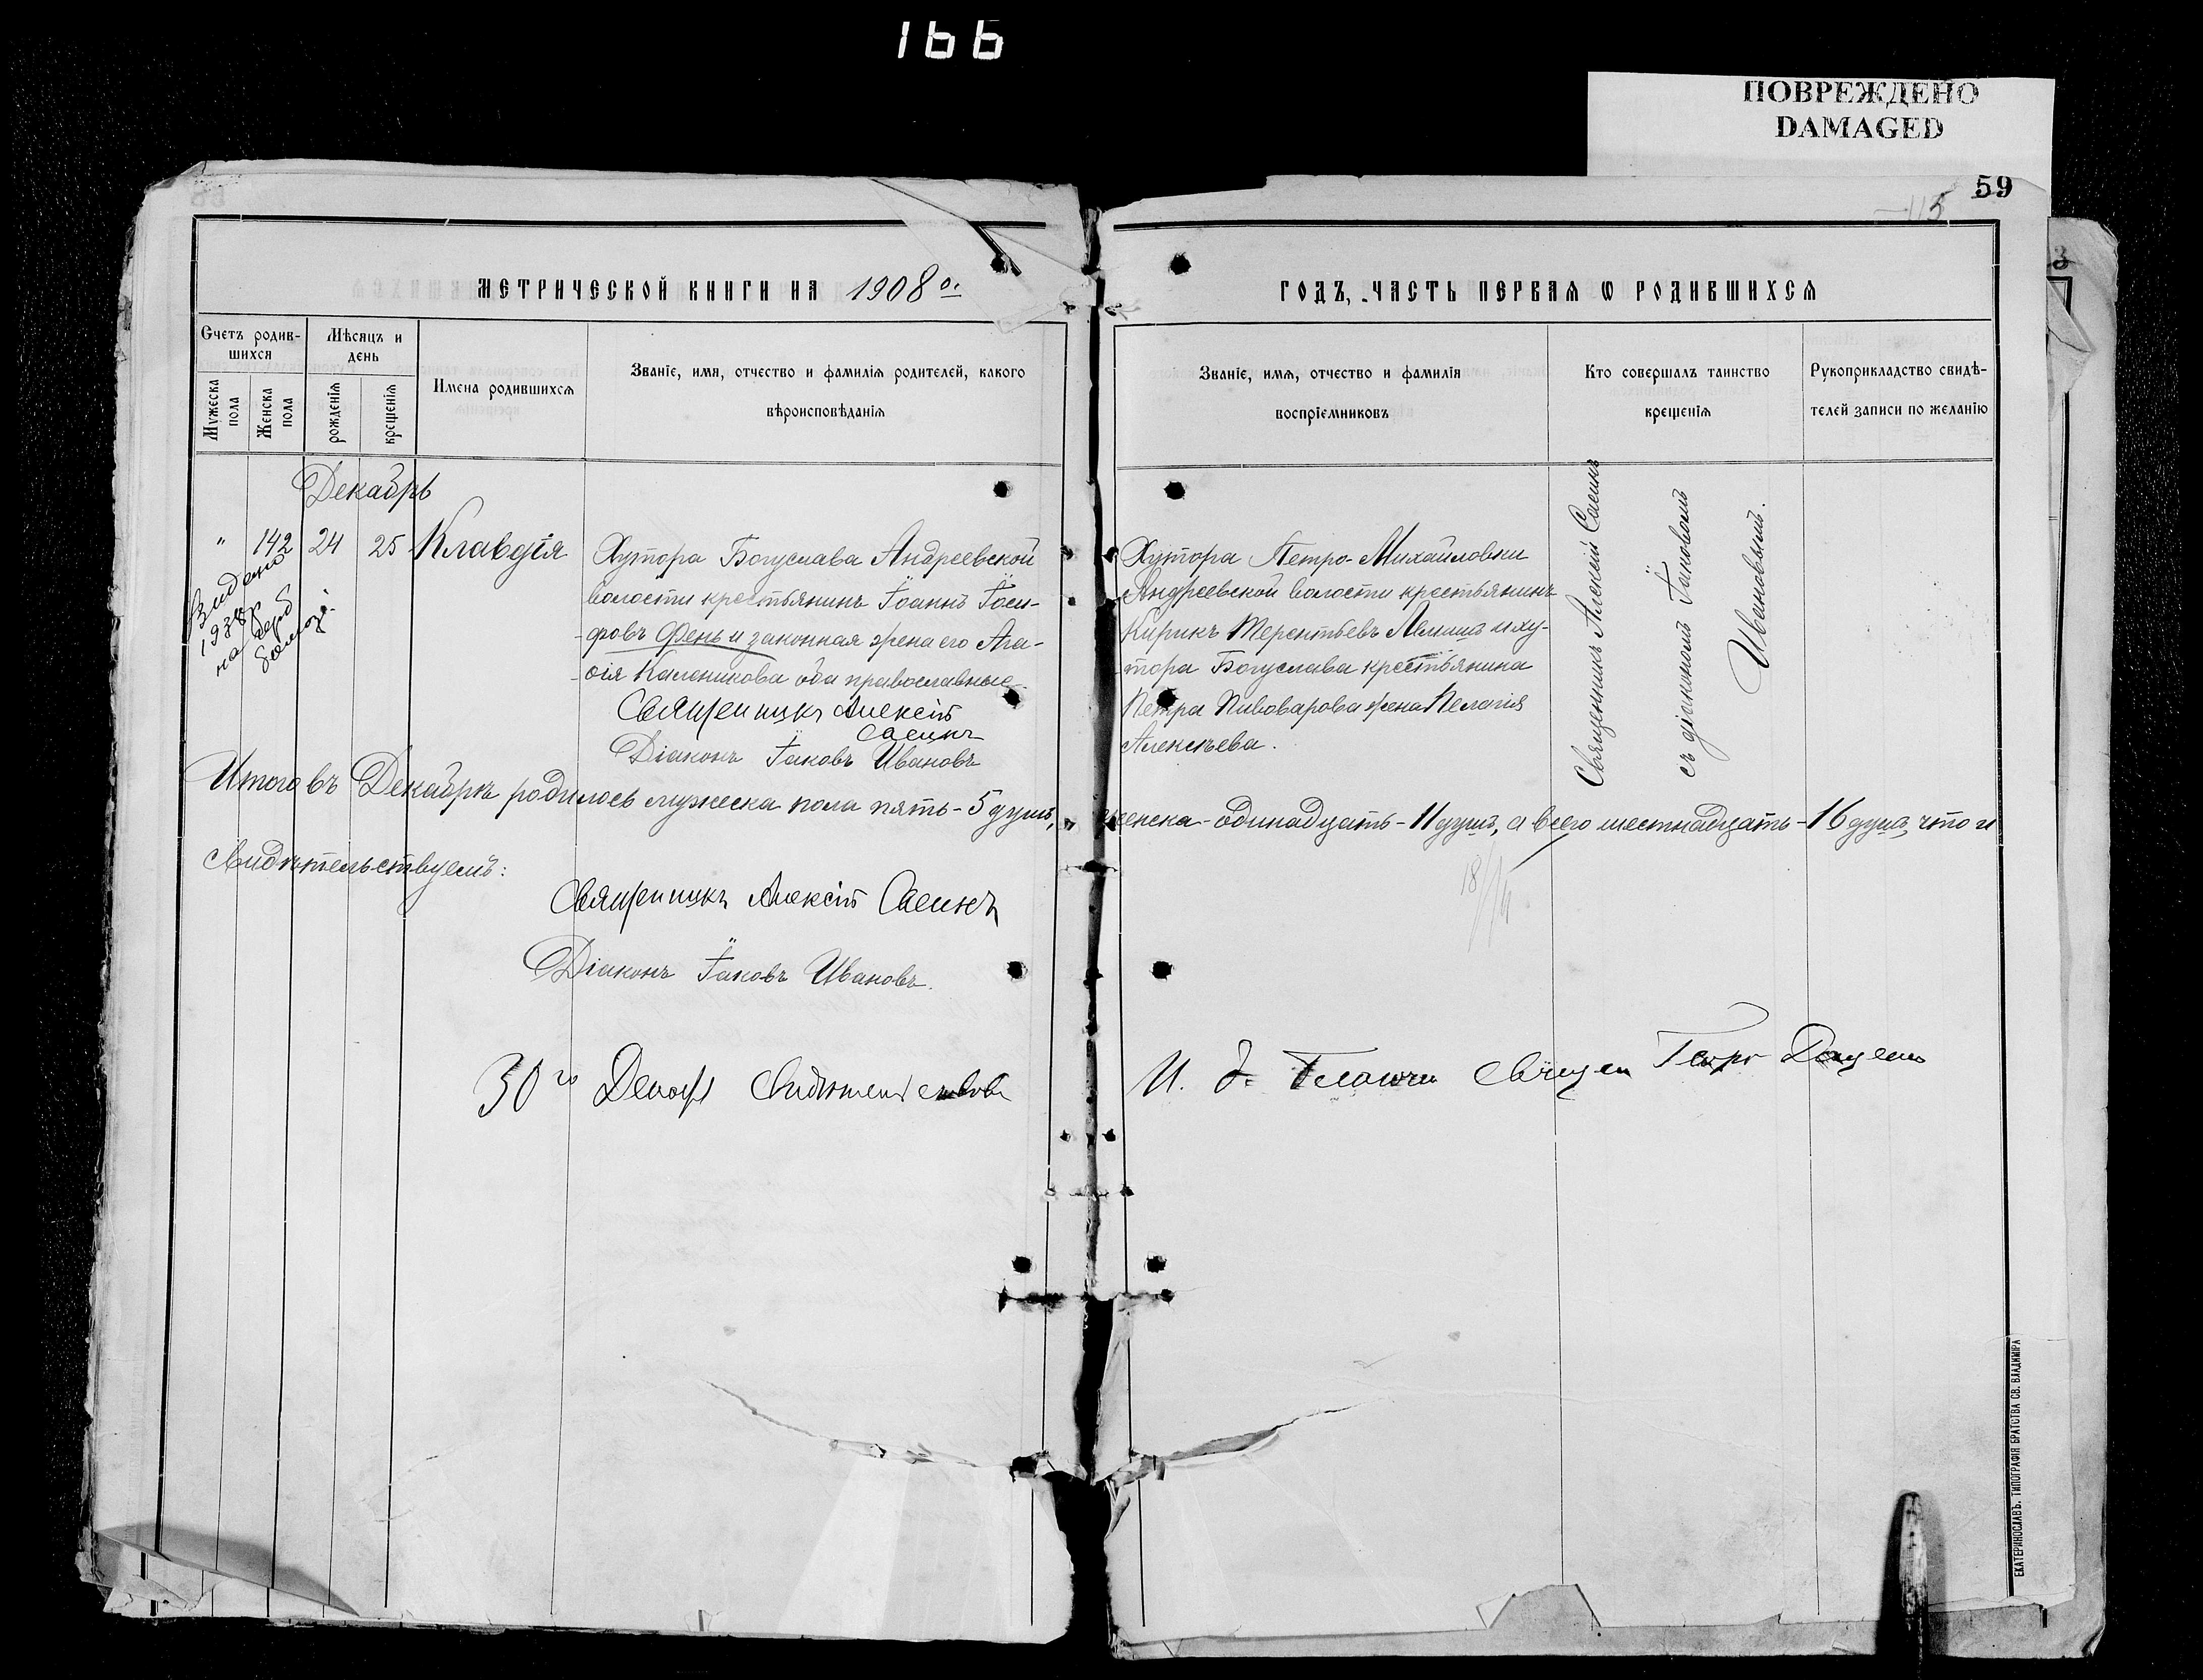 166
ПОВРЕЖДЕНО
DAMAGED
59
115
МЕТРИЧЕСКОЙ КНИГИ НА 1908 ОІ
ГОДЪ, ЧАСТЬ ПЕРВАЯ Ѡ РОДИВШИХСЯ
Счетъ родив-
шихся
Мужеска
пола
Женска
пола
Мѣсяцъ и
день
рожденія
крещенія
Имена родившихся
Званіе, имя, отчество и фамилія родителей, какого
вѣроисповѣданія
Званіе, имя, отчество и фамилія
воспріемниковъ
Кто совершалъ таинство
крещенія
Рукоприкладство свидѣ-
телей записи по желанію
Декабрь
" 142 24 25 Клавдія
1938
на
Хутора Богуслава Андреевской
волости крестьянинъ Іоаннъ Іоси-
фовъ Фень и законная жена его Ага-
ѳія Каленикова оба православные
Священникъ Алексій
Саенкъ
Діаконъ Іаковъ Ивановъ
Хутора Петро-Михайловки
Андреевской волости крестьянинъ
Кирикъ Терентьевъ и ху-
тора Богуслава крестьянина
Петра Пивоварова жена Пелагія
Алексѣева.
Священникъ Алексій Саенкъ
съ діакономъ Іаковомъ
Ивановымъ.
Итого въ Декабрѣ родилось мужеска пола пять - 5 душъ, женска - одинадцать - 11 душъ, а всего шестнадцать - 16 душъ, что и
свидѣтельствуемъ:
Священникъ Алексій Саенкъ
Діаконъ Іаковъ Ивановъ.
30 го
И. д. Благочин
ЕКАТЕРИНОСЛАВЪ. ТИПОГРАФІЯ БРАТСТВА СВ. ВЛАДИМІРА